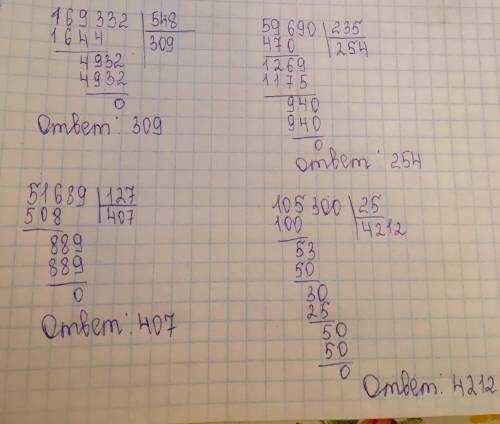 169332 548
1644 309
4932
4932
0
Ответ: 309
59690 235
470 254
1269
1175
940
940
0
Ответ: 254
51689 127
508 407
889
889
0
Ответ: 407
105300 25
100 4212
53
50
30
25
50
50
0
Ответ: 4212